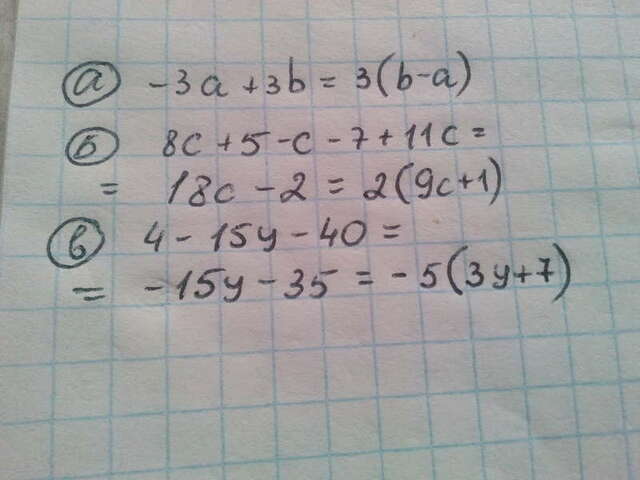 а) -3a + 3b = 3(b-a)
б) 8c + 5 - c - 7 + 11c =
= 18c - 2 = 2(9c+1)
в) 4 - 15y - 40 =
= -15y - 35 = -5(3y+7)